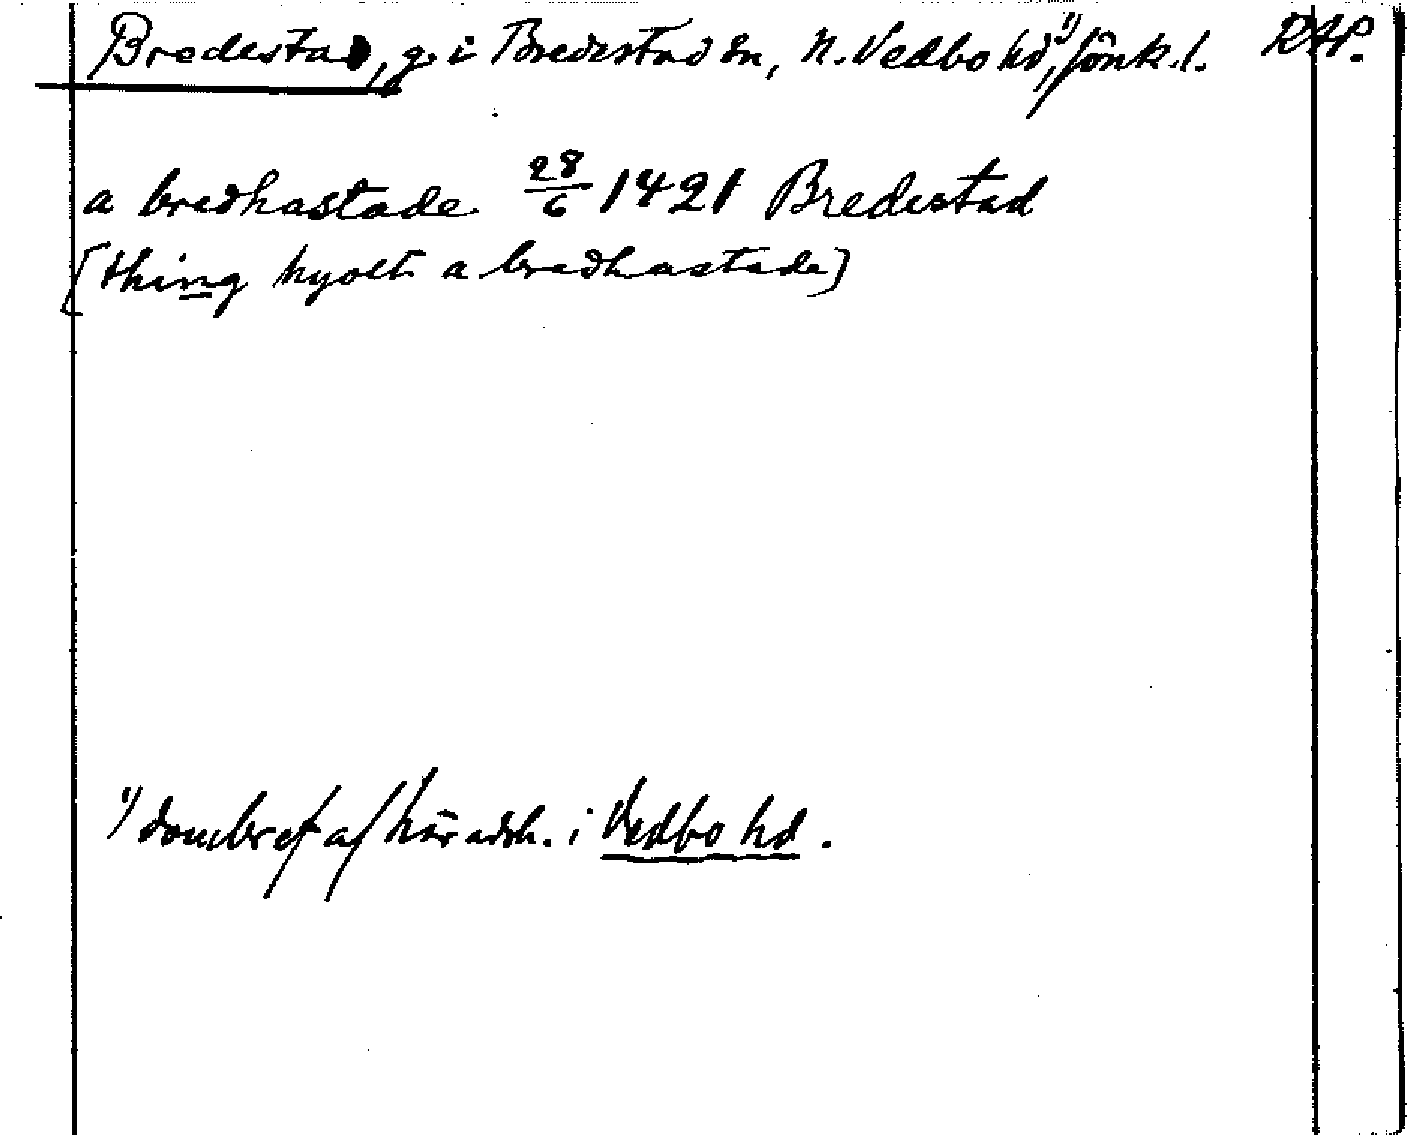 Bredestad, g. i Bredestad sn, N. Vedbo hd,¹⁾ Jönk. l. RAP.
a bredhastade 28/6 1421 Bredestad
[thing hyolt a bredhastade]
¹⁾ dombref af häradsh. i Vedbo hd.